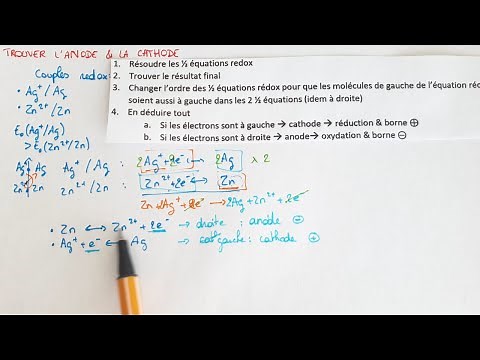 TROUVER L'ANODE & LA CATHODE
1. Résoudre les ½ équations redox
2. Trouver le résultat final
3. Changer l'ordre des ½ équations rédox pour que les molécules de gauche de l'équation ré
soient aussi à gauche dans les 2 ½ équations (idem à droite)
4. En déduire tout
a. Si les électrons sont à gauche → cathode → réduction & borne ⊕
b. Si les électrons sont à droite → anode → oxydation & borne ⊖
Couples redox:
• Ag⁺/Ag
• Zn²⁺/Zn
E₀(Ag⁺/Ag)
> E₀(Zn²⁺/Zn)
Ag⁺ Ag Ag⁺/Ag : 2Ag⁺ + 2e⁻ → 2Ag × 2
Zn²⁺ Zn Zn²⁺/Zn : Zn²⁺ + 2e⁻ → Zn
Zn + 2Ag⁺ + 2e⁻ → 2Ag + Zn²⁺ + 2e⁻
• Zn ↔ Zn²⁺ + 2e⁻ → droite : anode ⊖
• Ag⁺ + e⁻ ↔ Ag → gauche : cathode ⊕